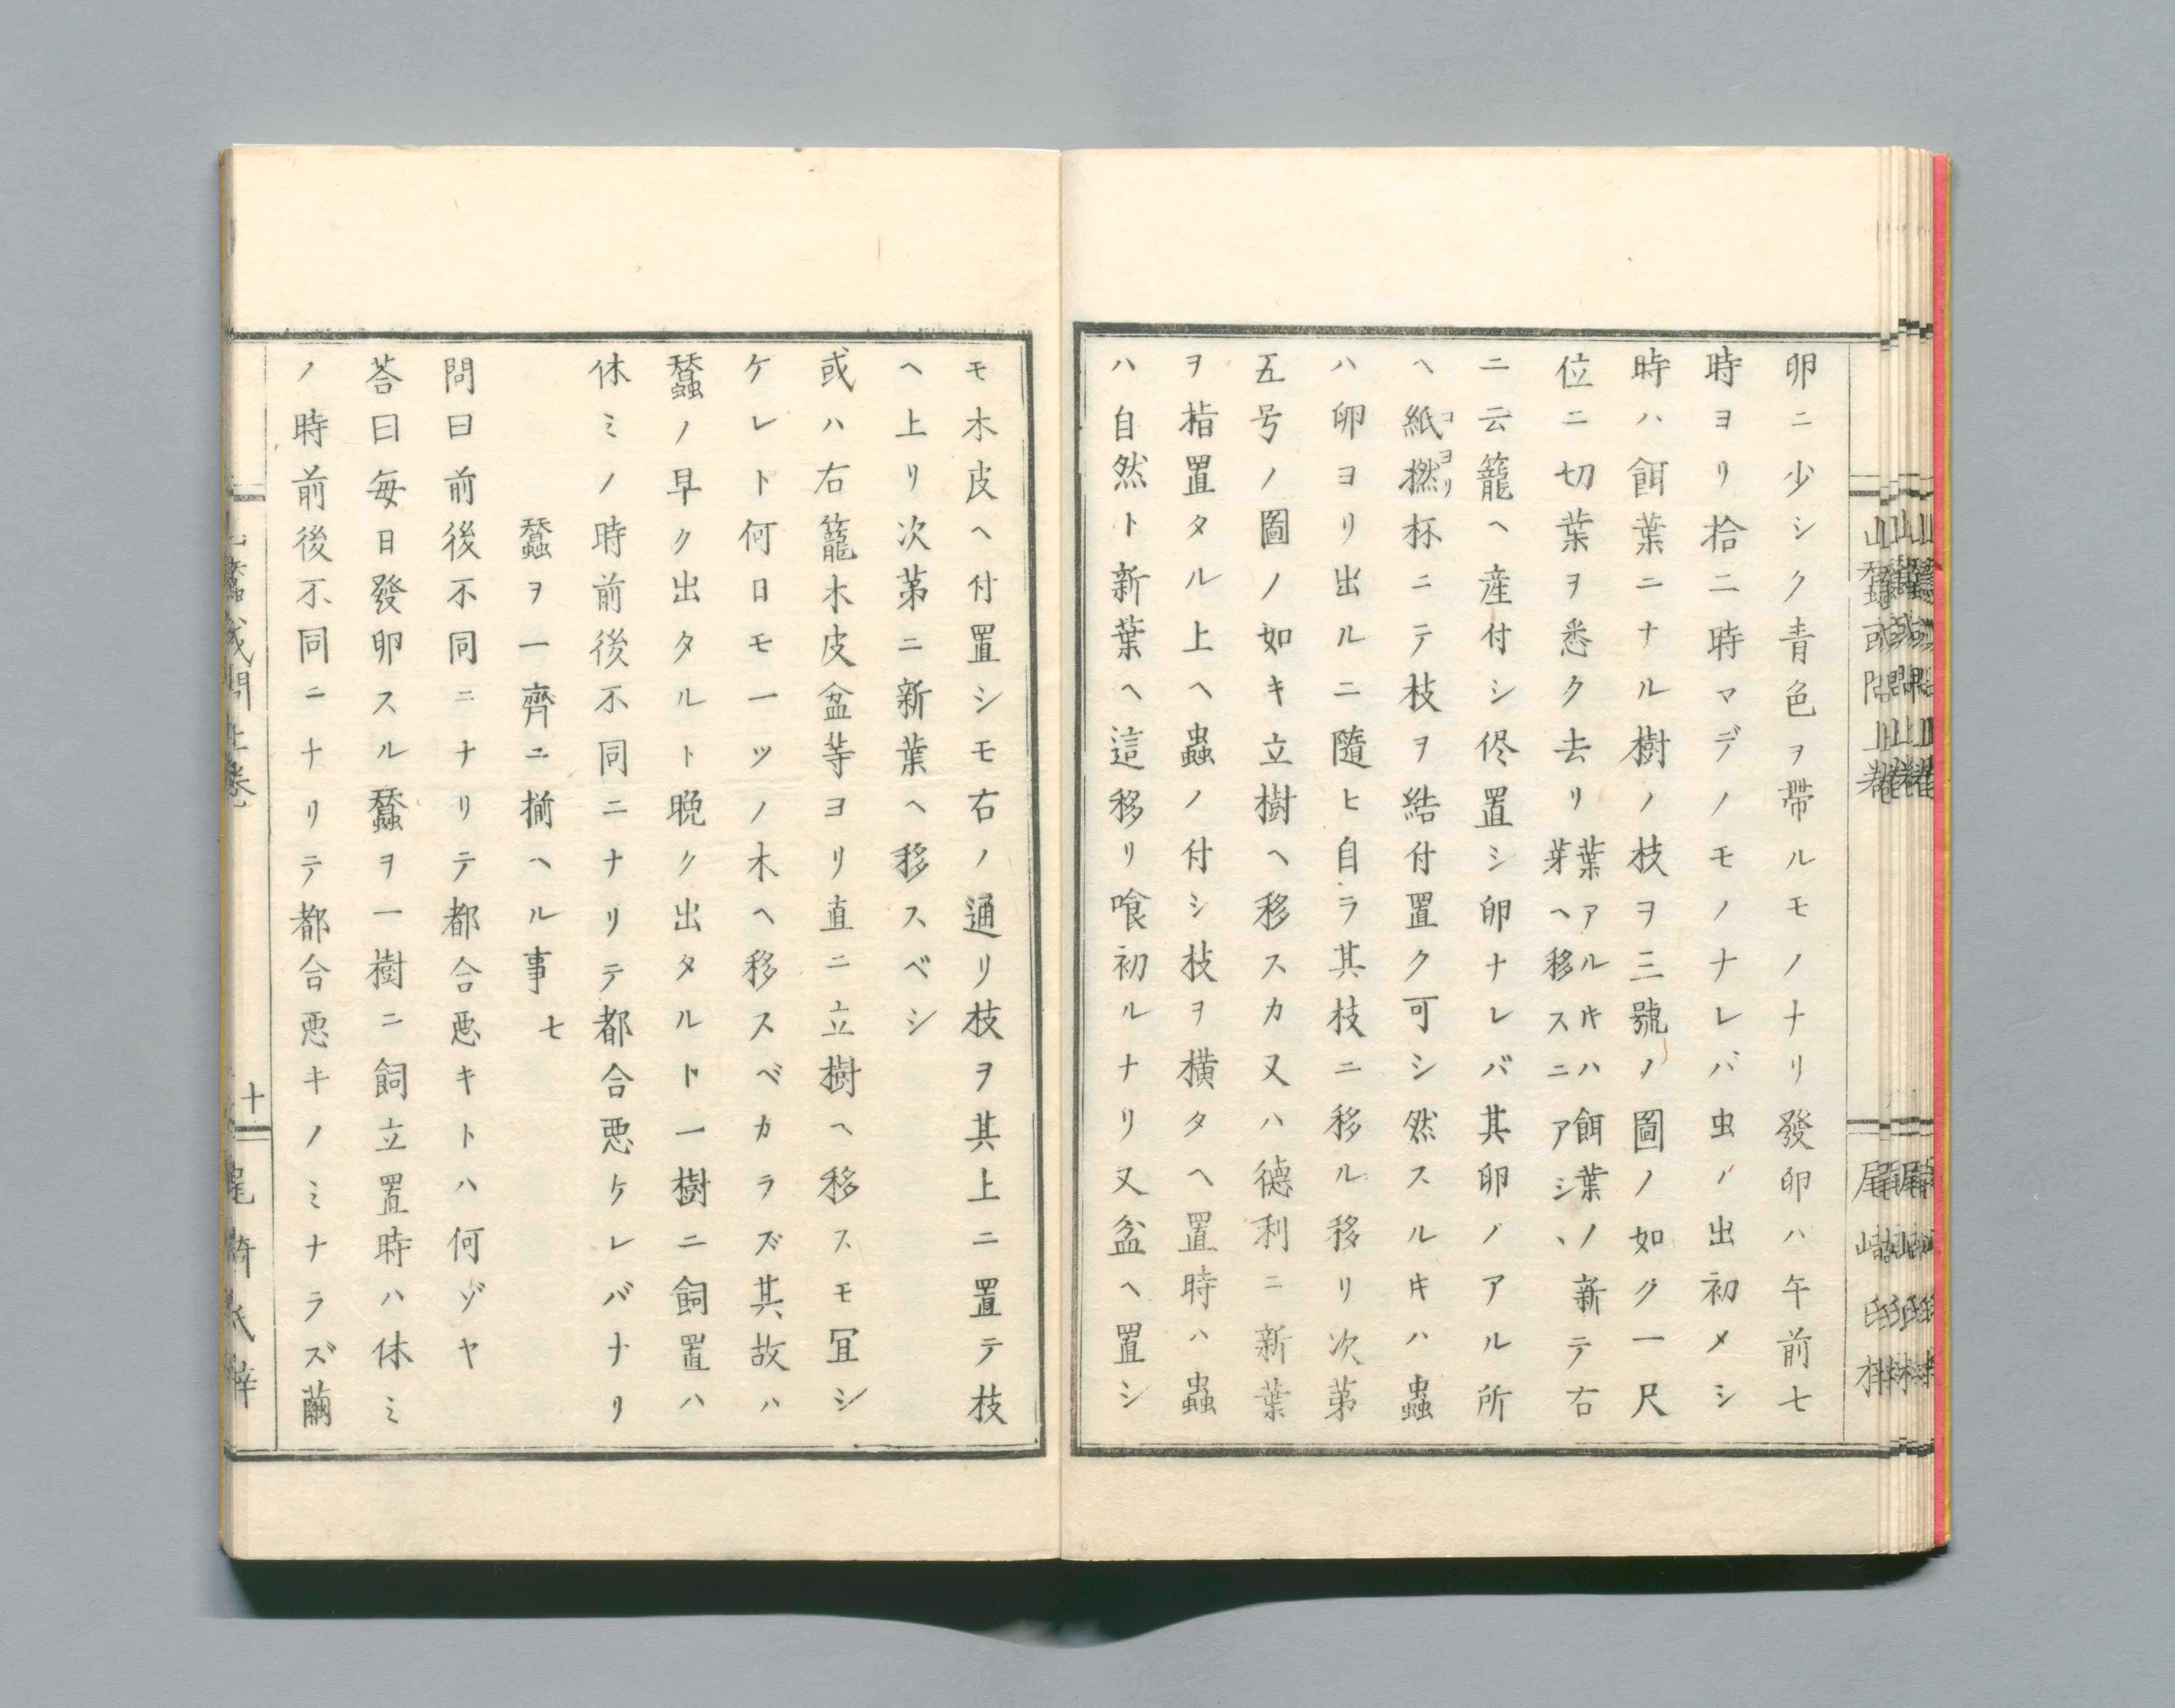 卵ニ少シク青色ヲ帶ルモノナリ發卵ハ午前七
時ヨリ拾二時マデノモノナレバ虫ノ出初メシ
時ハ餌葉ニナル樹ノ枝ヲ三號ノ圖ノ如ク一尺
位ニ切葉ヲ悉ク去リ
葉アルキハ餌葉ノ新
芽ヘ移スニアシヽ
テ右
ニ云籠ヘ産付シ侭置シ卵ナレバ其卵ノアル所
ヘ紙撚杯ニテ枝ヲ結付置ク可シ然スルキハ蟲
コヨリ
ハ卵ヨリ出ルニ隨ヒ自ラ其枝ニ移ル移リ次第
五号ノ圖ノ如キ立樹ヘ移スカ又ハ德利ニ新葉
ヲ揩置タル上ヘ蟲ノ付シ枝ヲ横タヘ置時ハ蟲
ハ自然ト新葉ヘ這移リ喰初ルナリ又盆ヘ置シ
モ木皮ヘ付置シモ右ノ通リ枝ヲ其上ニ置テ枝
ヘ上リ次第ニ新葉ヘ移スベシ
或ハ右籠木皮盆等ヨリ直ニ立樹ヘ移スモ冝シ
ケレト何日モ一ツノ木ヘ移スベカラズ其故ハ
蠶ノ早ク出タルト晩ク出タルト一樹ニ飼置ハ
休ミノ時前後不同ニナリテ都合悪ケレバナリ
蠶ヲ一齊ニ揃ヘル事 七
問曰前後不同ニナリテ都合悪キトハ何ゾヤ
荅曰毎日發卵スル蠶ヲ一樹ニ飼立置時ハ休ミ
ノ時前後不同ニナリテ都合悪キノミナラズ繭
山蠶或問上巻
十
尾崎氏梓